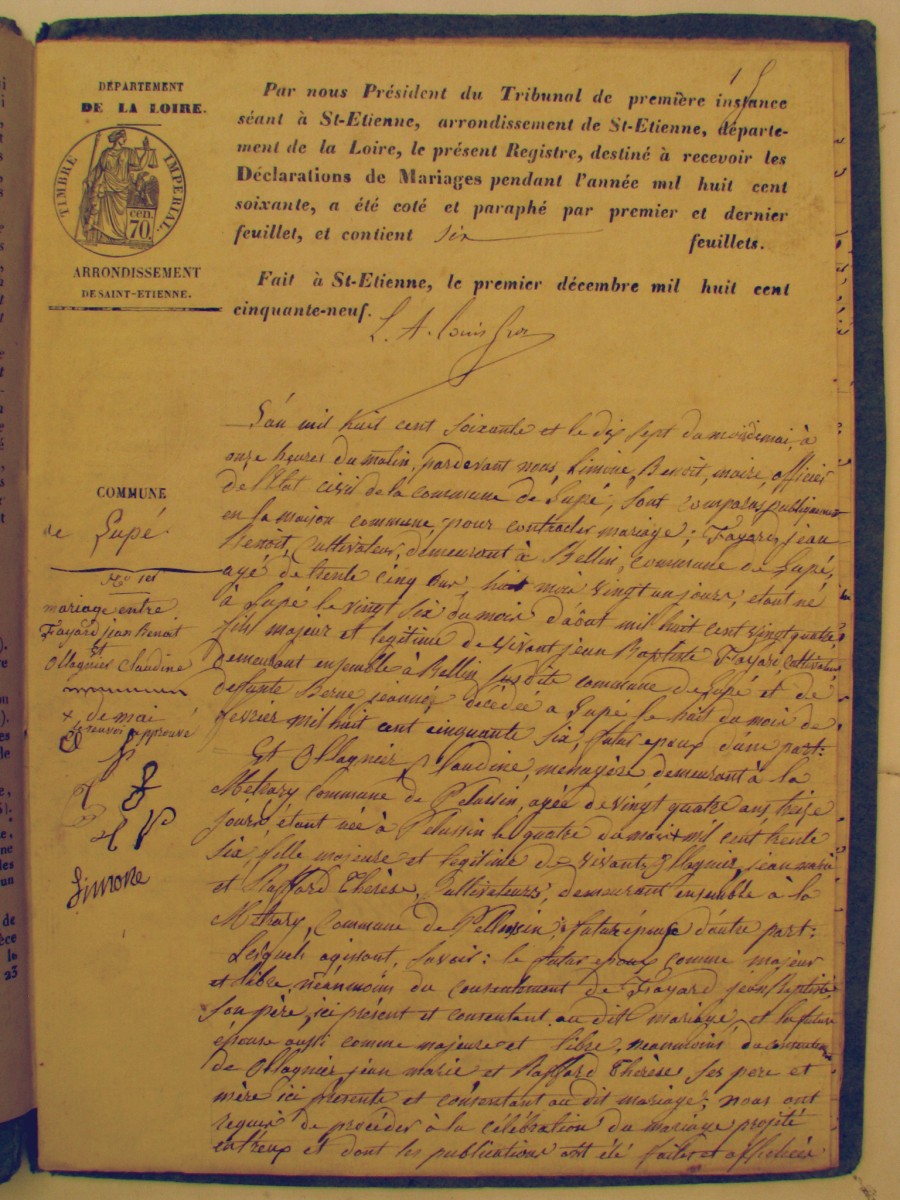 15
DÉPARTEMENT
DE LA LOIRE.
TIMBRE IMPÉRIAL.
cen.
70.
ARRONDISSEMENT
DE SAINT-ETIENNE.
Par nous Président du Tribunal de première instance
séant à St-Etienne, arrondissement de St-Etienne, départe-
ment de la Loire, le présent Registre, destiné à recevoir les
Déclarations de Mariages pendant l'année mil huit cent
soixante, a été coté et paraphé par premier et dernier
feuillet, et contient six feuillets.
Fait à St-Etienne, le premier décembre mil huit cent
cinquante-neuf.
COMMUNE
de Lupé
No 1er
mariage entre
Fayard jean benoit
et
Ollagnier Claudine
+ de mai
renvoi approuvé
Limone
L'an mil huit cent soixante et le dix sept du mois de mai, à
onze heures du matin, pardevant nous Limone, Benoit, maire, officier
de l'Etat civil de la commune de Lupé, sont comparus publiquement
en la maison commune pour contracter mariage; Fayard, jean
Benoit, Cultivateur, demeurant à Bellin, commune de Lupé,
agé de trente cinq ans, huit mois vingt un jours, étant né
à Lupé le vingt six du mois d'août mil huit cent vingt quatre,
fils majeur et legitime de vivant jean Baptiste Fayard, cultivateur
demeurant ensemble à Bellin susdite commune de Lupé et de
defunte Berne jeanne, décédée à Lupé le huit du mois de
fevrier mil huit cent cinquante six, futur epoux d'une part:
Et Ollagnier Claudine, menagère demeurant à la
Métrary commune de Pelussin, agée de vingt quatre ans, treize
jours, étant née à Pelussin le quatre du mil cent trente
six, fille majeure et legitime de vivants Ollagnier, jean marie
et Raffard Thérèse, Cultivateurs, demeurant ensemble à la
Métrary, Commune de Pellussin, future épouse d'autre part:
Lesquels agissant, savoir: le futur epoux comme majeur
et libre, néanmoins du consentement de Fayard jean Baptiste
son père, ici présent et consentant au dit mariage, et la future
épouse aussi comme majeure et libre, neanmoins du consentement
de Ollagnier jean marie et Raffard Thérèse ses pere et
mère ici présente et consentant au dit mariage; nous ont
requis de procéder à la célébration du mariage projeté
entreux et dont les publications ont été faites et affichées